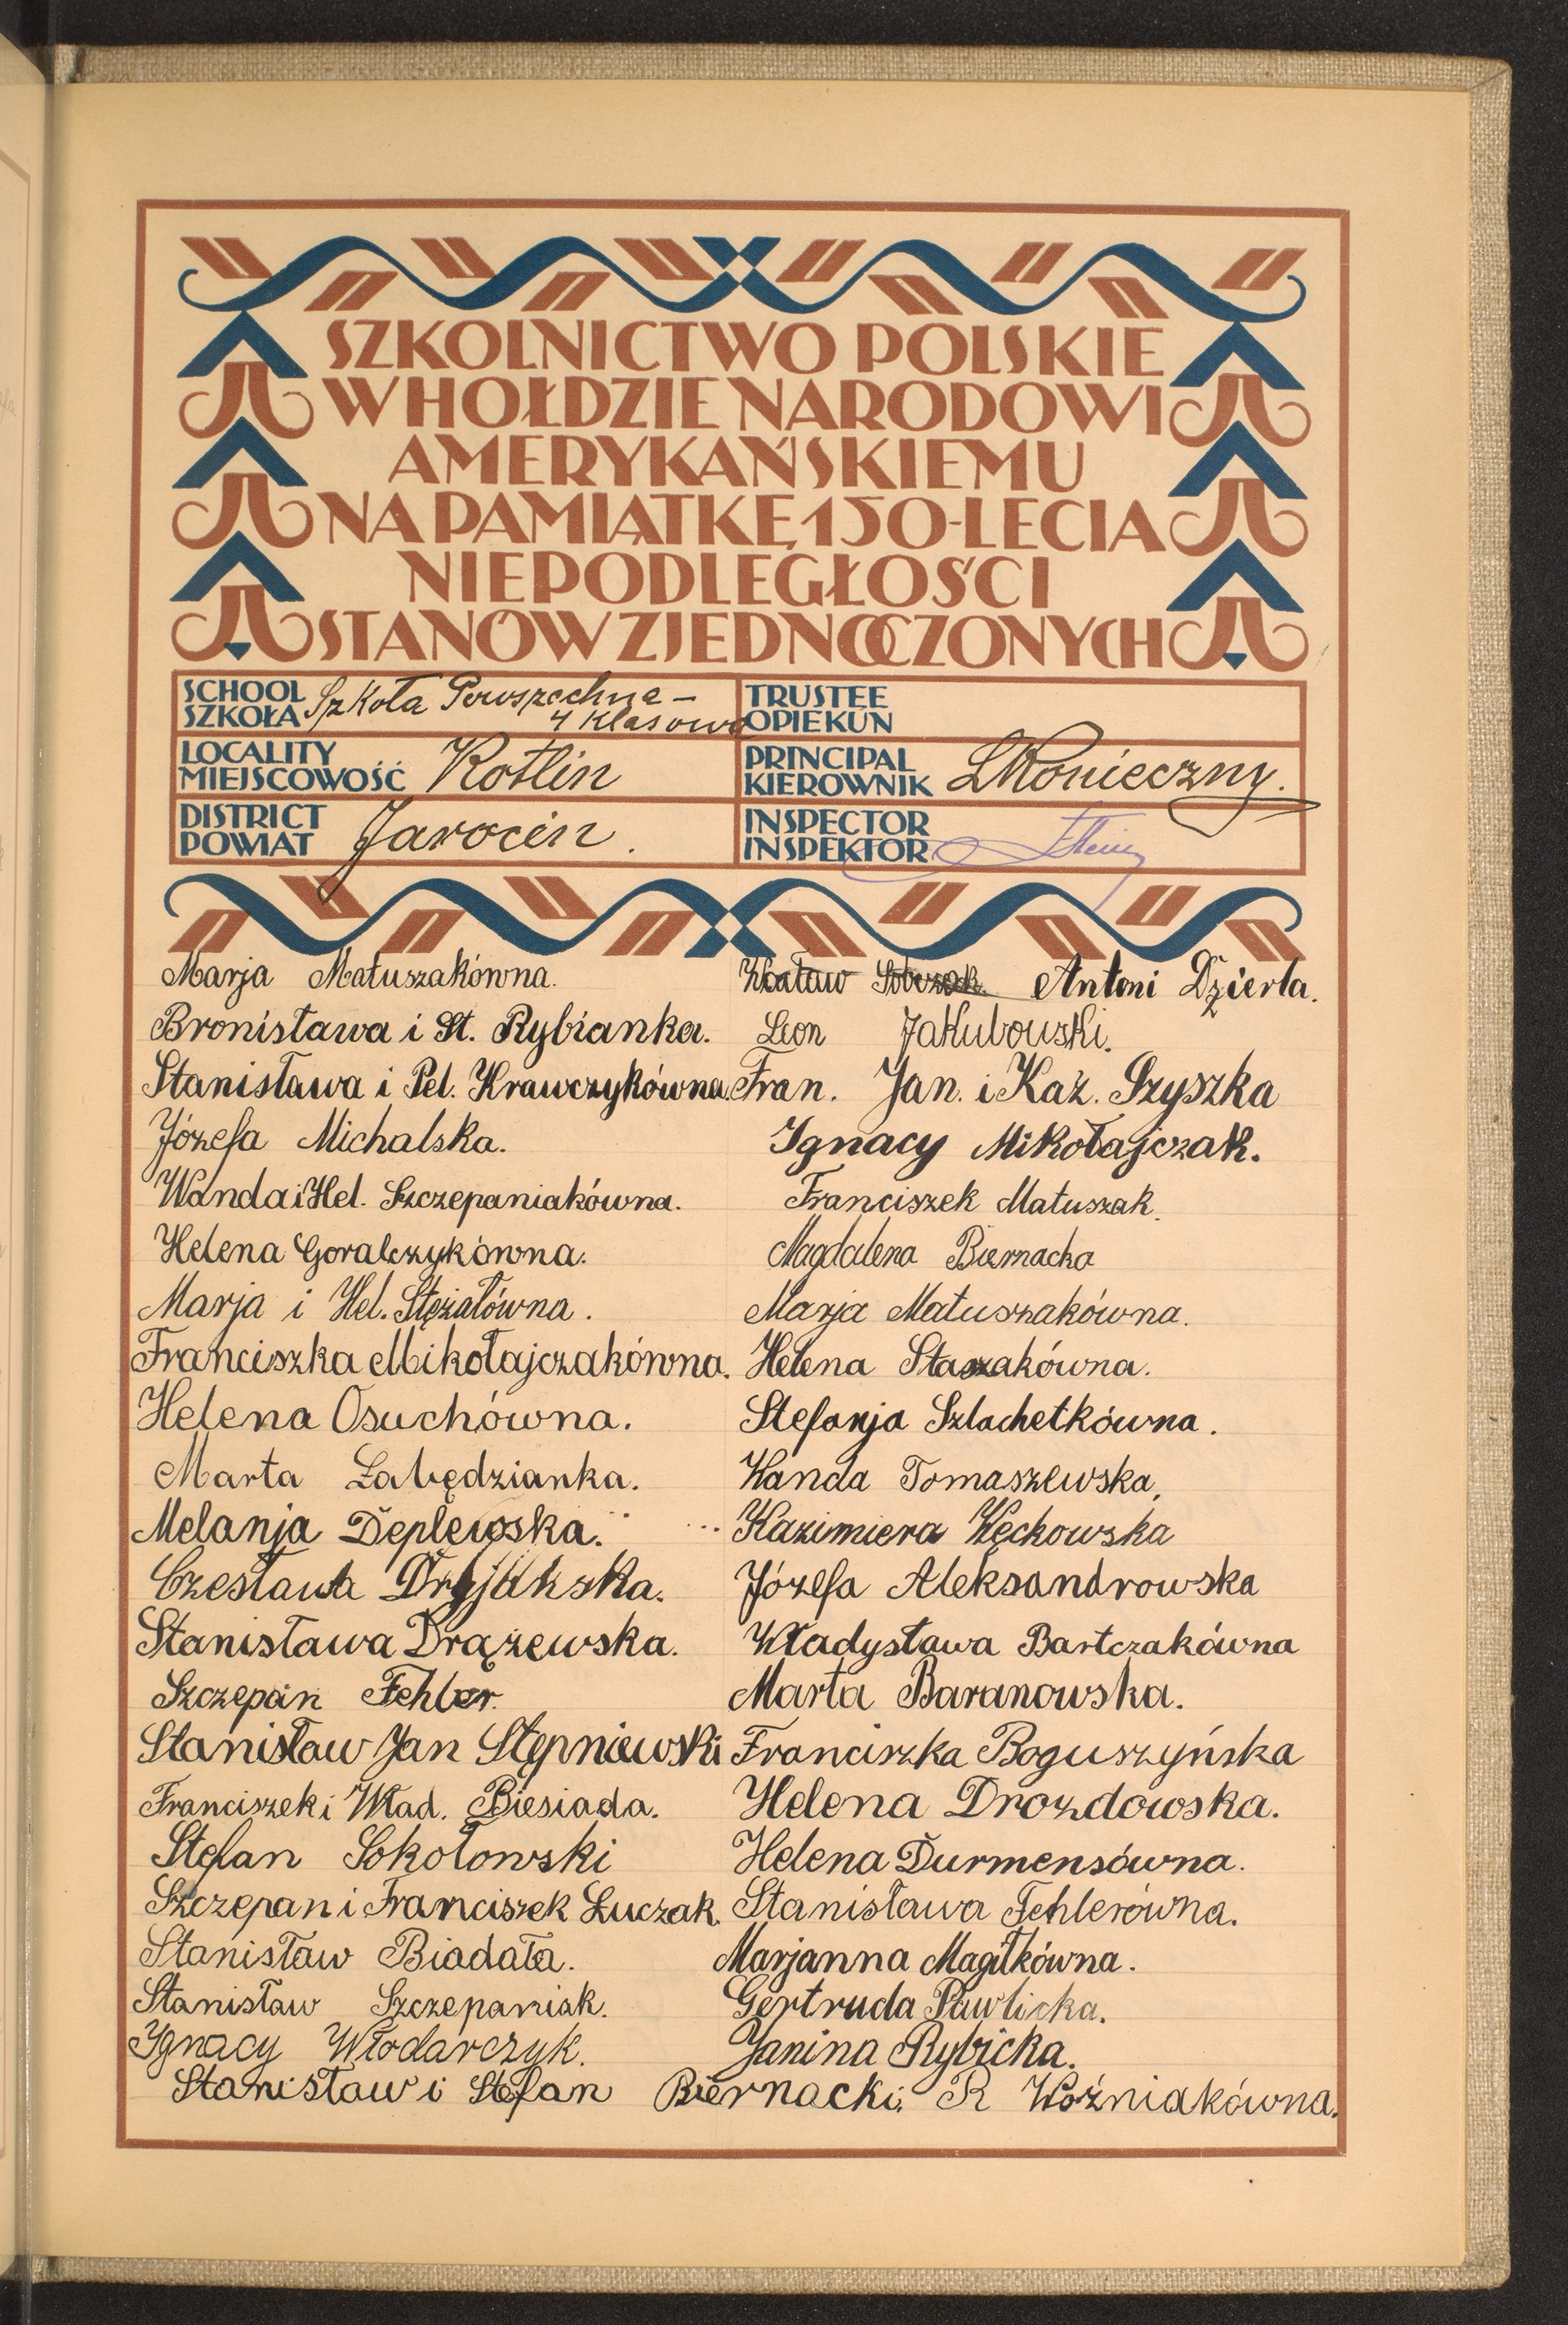 SZKOLNICTWO POLSKIE
W HOŁDZIE NARODOWI
AMERYKAŃSKIEMU
NA PAMIĄTKĘ 150-LECIA
NIEPODLEGŁOŚCI
STANÓW ZJEDNOCZONYCH
SCHOOL
SZKOŁA
Szkoła Powszechna –
4 klasowa
TRUSTEE
OPIEKUN
LOCALITY
MIEJSCOWOŚĆ
Kotlin
PRINCIPAL
KIEROWNIK
LKonieczny.
DISTRICT
POWIAT
Jarocin.
INSPECTOR
INSPEKTOR
Marja Matuszakówna.
Bronisława i St. Rybianka.
Stanisława i Pel. Krawczykówna.
Józefa Michalska.
Wanda i Hel. Szczepaniakówna.
Helena Goralczykówna.
Marja i Hel. Stężałówna.
Franciszka Mikołajczakówna.
Helena Osuchówna.
Marta Łabędzianka.
Melanja Deplewska.
Czesława Dryjańska.
Stanisława Drążewska.
Szczepan Fehler.
Stanisław Jan Stępniewski
Franciszek i Wład. Biesiada.
Stefan Sokołowski
Szczepan i Franciszek Łuczak.
Stanisław Biadała.
Stanisław Szczepaniak.
Ignacy Włodarczyk.
Stanisław i Stefan Biernacki.
Antoni Dzierla.
Leon Jakubowski.
Fran. Jan. i Kaź. Szyszka
Ignacy Mikołajczak.
Franciszek Matuszak.
Magdalena Biernacka
Marja Matuszakówna.
Helena Staszakówna.
Stefanja Szlachetkówna.
Wanda Tomaszewska,
Kazimiera Węckowska
Józefa Aleksandrowska
Władysława Bartczakówna
Marta Baranowska.
Franciszka Boguszyńska
Helena Drozdowska.
Helena Durmensówna.
Stanisława Fehlerówna.
Marjanna Magitkówna.
Gertruda Pawlicka.
Janina Rybicka.
R Woźniakówna.